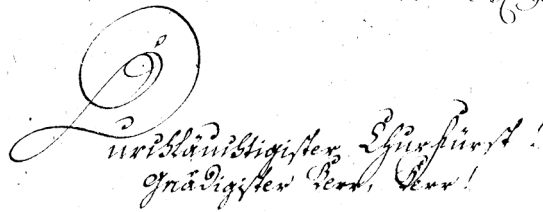 Durchläuchtigister Churfürst!
Gnädigister Herr, Herr!